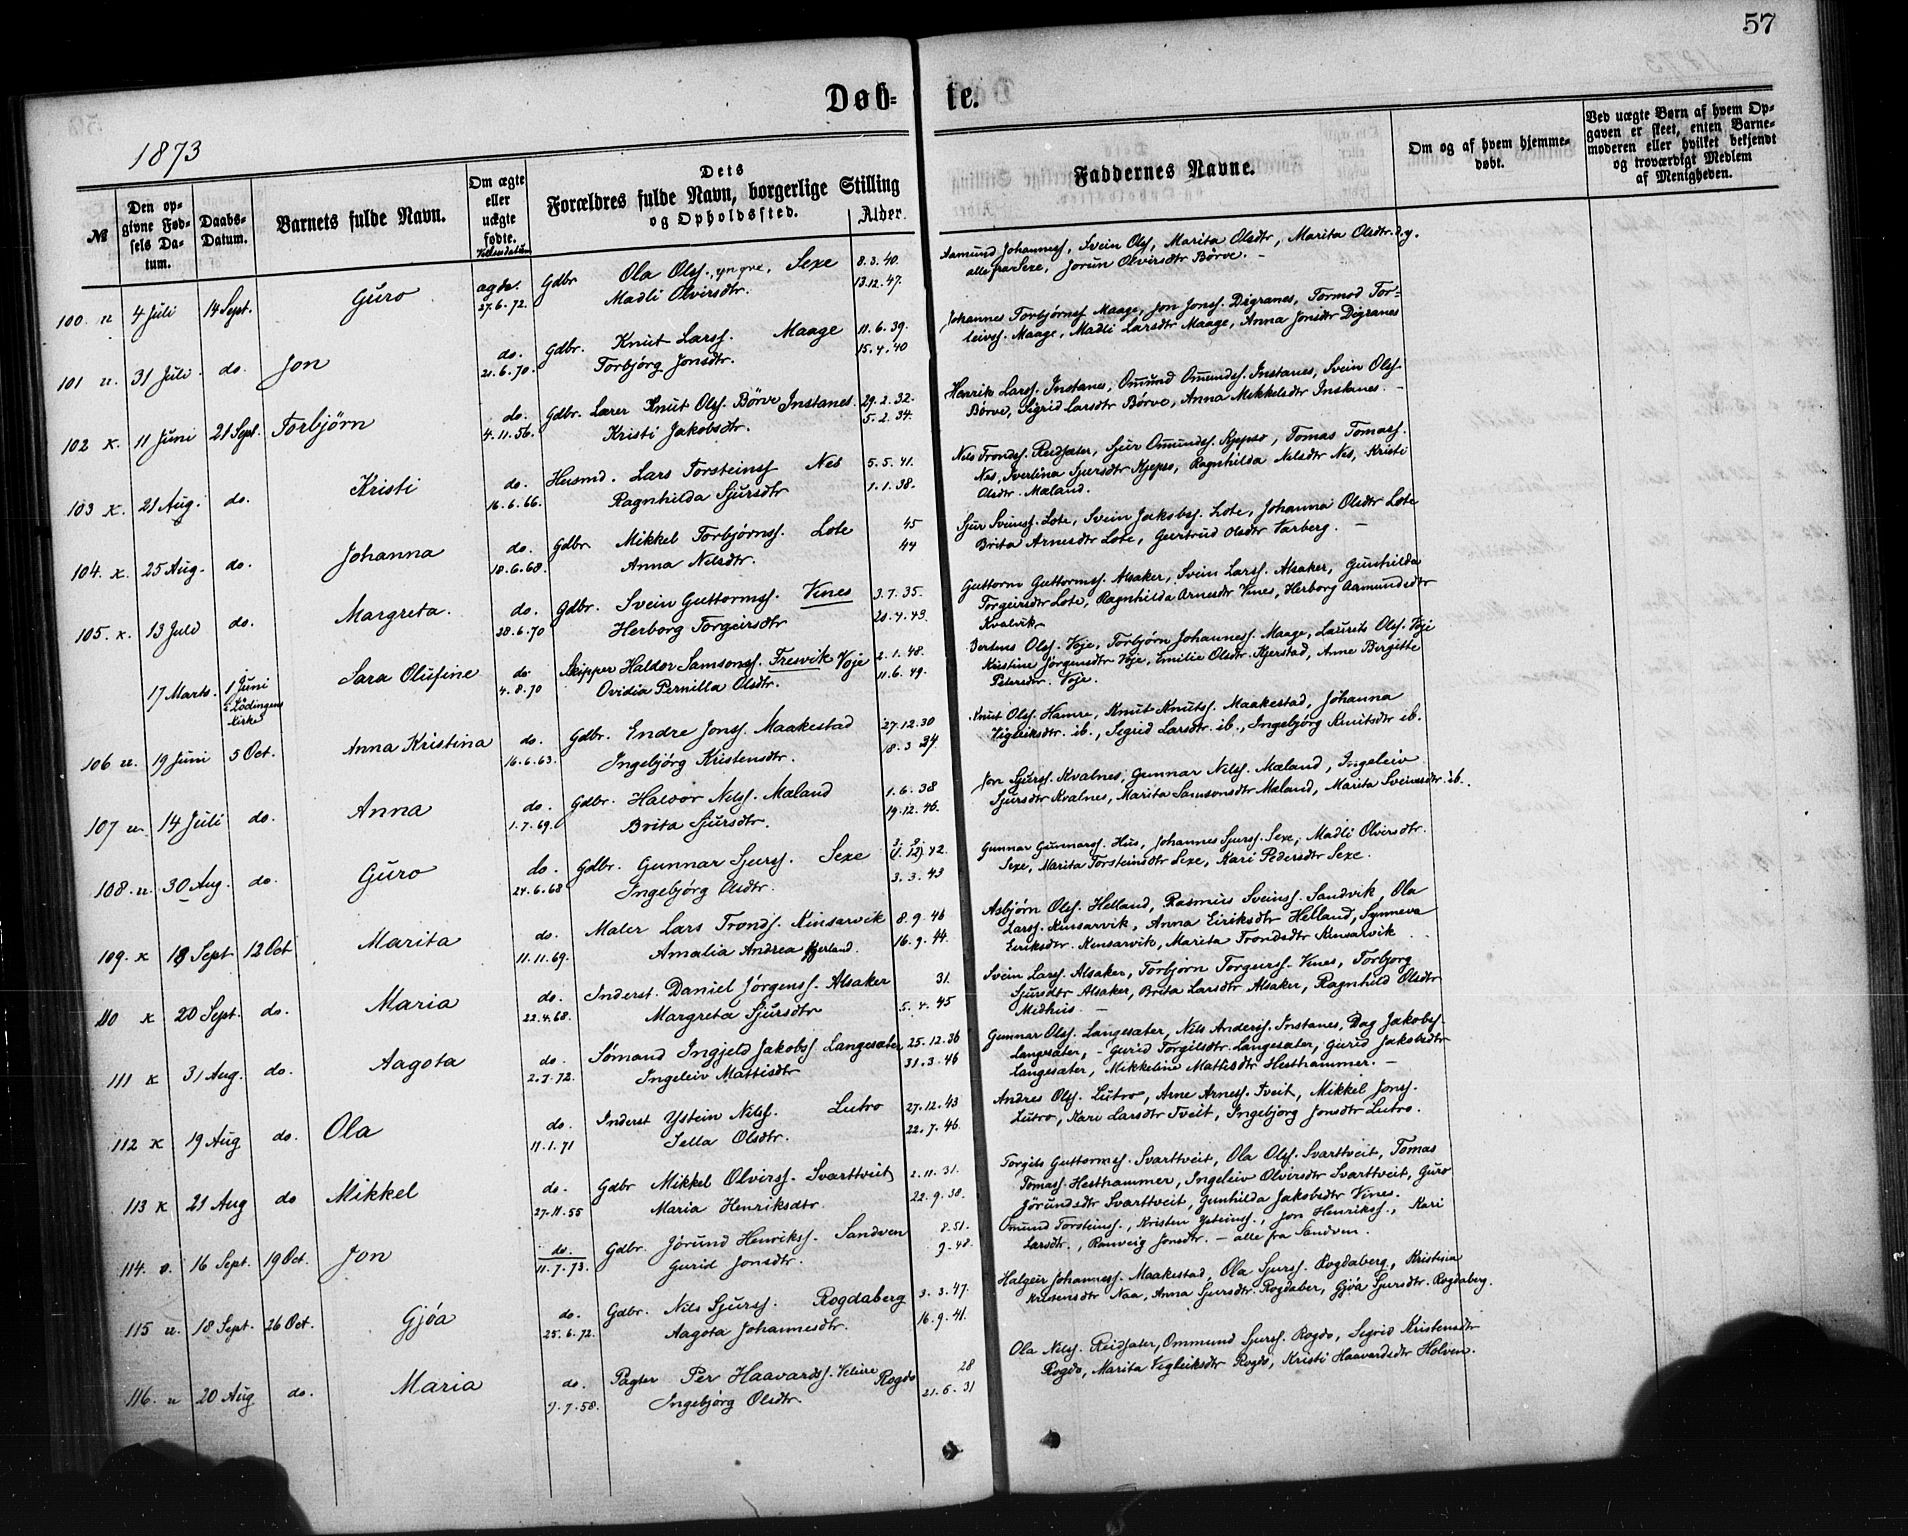 57
Døbte.
1873
№
Den opgivne Fødsels Datum.
Daabs-Datum.
Barnets fulde Navn.
Om ægte eller uægte fødte.
Vielsesdatum
Dets Forældres fulde Navn, borgerlige Stilling og Opholdssted.
Alder.
Faddernes Navne.
Om og af hvem hjemmedøbt.
Ved uægte Børn af hvem Opgaven er skeet, enten Barnemoderen eller hvilket bekjendt og troværdigt Medlem af Menigheden.
100. u 4 Juli 14 Sept. Guro ægte. 27.6.72. Gdbr Ola Olss., yngre, Sexe 8.3.40.
Madli Olvirsdtr. 13.12.47.
Aamund Johanness., Svein Olss., Marita Olsdtr., Marita Olsdtr. d.y.
alle fra Sexe, Jorun Olvirsdtr Børve. –
101 u. 31 Juli do. Jon do. 21.6.70. Gdbr. Knut Larss. Maage 11.6.39.
Torbjørg Jonsdtr. 15.4.40
Johannes Torbjørnss. Maage, Jon Jonss. Digranes, Tormod Tor-
leivs. Maage, Madli Larsdtr Maage, Anna Jonsdtr Digranes
102 K. 11 Juni 21 Sept. Torbjørn do. 4.11.56. Gdbr. Lærer Knut Olss. Børve Instanes. 29.2.32.
Kristi Jakobsdtr. 5.2.34.
Henrik Larss. Instanes, Omund Omunds. Instanes, Svein Olss.
Børve, Sigrid Larsdtr Børve, Anna Mikkelsdtr Instanes. –
103 K. 21 Aug. do. Kristi do. 16.6.66. Husmd. Lars Torsteinss. Nes 5.5.41.
Ragnhilda Sjursdtr 1.1.38.
Nils Tronds. Reidsæter, Sjur Omunds. Kjepso, Tomas Tomass.
Nes, Sverlina Sjursdtr Kjepso, Ragnhilda Nilsdtr Nes, Kristi
Olsdtr. Mæland.
104. K. 25 Aug. do. Johanna do. 18.6.68. Gdbr Mikkel Torbjørnss. Lote 45
Anna Nilsdtr. 44
Sjur Sveinss. Lote, Svein Jakobss. Lote, Johanna Olsdtr Lote
Brita Arnesdtr Lote, Gurtrud Olsdtr Varberg. –
105. K. 13 Juli do. Margreta. do. 28.6.70 Gdbr. Svein Guttormss. Vines 3.7.35.
Herborg Torgeirsdtr 20.4.43.
Guttorm Guttormss. Alsaker, Svein Larss. Alsaker, Gunhilda
Torgeirsdtr Lote, Ragnhilda Arnesdtr Vines, Herborg Aamundsdtr
Kvalvik
17 Marts. 1 Juni i Lödingens Kirke Sara Olufine do 4.8.70 Skipper Haldor Samsons. Tresvik Voje 2.1.48.
Ovidia Pernilla Olsdtr. 11.6.49.
Bertens Olss. Voje, Torbjørn Johanness. Maage, Laurits Olss. Voje
Kristine Jørgensdtr Voje, Emilie Olsdtr. Kjerstad, Anne Birgitte
Petersdtr. Voje.
106 u. 19 Juni 5 Oct. Anna Kristina do. 16.6.63. Gdbr. Endre Jonss. Maakestad 27.12.30
Ingebjörg Kristensdtr. 18.3.34.
Knut Olss. Hamre, Knut Knutss. Maakestad, Johanna
Vigleiksdtr. ib., Sigrid Larsdtr. ib., Ingebjörg Knutsdtr ib.
107 u 14 Juli do. Anna do. 1.7.69. Gdbr. Halvor Nilss. Mæland 1.6.38
Brita Sjursdtr. 19.12.46.
Jon Sjurss. Kvalnes, Gunnar Nilss. Mæland, Ingeleiv
Sjursdtr Kvalnes, Marita Samsonsdtr Mæland, Marita Sveinsdtr. ib.
108. u. 30 Aug. do. Guro do. 24.6.68 Gdbr. Gunnar Sjurss. Sexe 42.
Ingebjörg Olsdtr. 3.3.43
Gunnar Gunnarss. Hus, Johannes Sjurss. Sexe, Madli Olvirsdtr.
Sexe, Marita Torsteinsdtr Sexe, Kari Pedersdtr Sexe.
109. K 18 Sept 12 Oct Marita do. 11.11.69. Maler Lars Tronds. Kinsarvik 8.9.46
Amalia Andrea 16.9.44.
Asbjörn Olss. Helland, Rasmus Sveinss. Sandvik, Ola
Larss. Kinsarvik, Anna Eiriksdtr Helland, Synneva
Eiriksdtr. Kinsarvik, Marita Trondsdtr Kinsarvik
110 K 20 Sept. do. Maria do. 22.4.68. Inderst. Daniel Jørgenss. Alsaker 31.
Margreta Sjursdtr 5.4.45
Svein Larss. Alsaker, Torbjørn Torgeirss. Vines, Torbjørg
Sjursdtr Alsaker, Brita Larsdtr Alsaker, Ragnhild Olsdtr
Midhus. –
111 K 31 Aug. do. Aagota do. 2.7.72. Sømand Ingjeld Jakobss. Langesæter 25.12.36
Ingeleiv Mattisdtr 31.3.46
Gunnar Olss. Langesæter, Nils Anderss. Instanes, Dag Jakobss.
Langesæter, – Gurid Torgilsdtr. Langesæter, Gurid Jakobsdtr
Langesæter, Mikkeline Mattisdtr Hesthammer. –
112 K 19 Aug do. Ola do. 11.1.71 Inderst Ystein Nilss. Lutro 27.12.43
Sella Olsdtr. 22.7.46.
Andres Olss. Lutro, Arne Arness. Tveit, Mikkel Jonss.
Lutro, Kari Larsdtr Tveit, Ingebjörg Jonsdtr Lutro.
113 K 21 Aug do Mikkel do. 27.11.55 Gdbr Mikkel Olvirss. Svarttveit 2.11.31.
Maria Henriksdtr. 22.9.30.
Torgils Guttormss. Svarttveit, Ola Olss. Svarttveit, Tomas
Tomass. Hesthammer, Ingeleiv Olvirsdtr Svarttveit, Guro
Jörundsdtr Svarttveit, Gunhilda Jakobsdtr Vines.
114. o. 16 Sept. 19 Oct. Jon do. 11.7.73. Gdbr. Jörund Henrikss. Sandven 8.51.
Gurid Jonsdtr. 9.48.
Omund Torsteinss., Kristen Ysteinss., Jon Henrikss., Kari
Larsdtr., Ranveig Jonsdtr. – alle fra Sandven.
115 u. 18 Sept. 26 Oct. Gjöa do. 25.6.72. Gdbr. Nils Sjurss. Rogdaberg 3.3.47.
Aagota Johannesdtr. 16.9.41.
Halgeir Johanness. Maakestad, Ola Sjurss. Rogdaberg, Kristina
Kristensdtr Naa, Anna Sjursdtr. Rogdaber, Gjöa Sjursdtr. Rogdaberg.
116. u 20 Aug do. Maria do. 9.7.58. Pagter Per Haavards. Velure Rogdo 28
Ingebjörg Olsdtr 21.6.31
Ola Nilss. Reidsæter, Ommund Sjurss. Rogdo, Sigrid Kristensdtr
Rogdo, Marita Vigleiksdtr Rogdo, Kristi Haavardsdtr Holven.